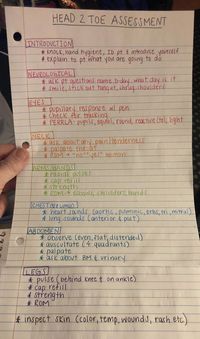 HEAD 2 TOE ASSESSMENT
INTRODUCTION
* knock, hand hygiene, ID pt & introduce yourself
* explain to pt what you are going to do
NEUROLOGICAL
* ask pt questions: name, b-day, what day is it
* smile, stick out tongue, shrug shoulders
EYES
* pupillary response w/ pen
* check eye tracking
* PERRLA - pupils, equal, round, reactive to light
NECK
* ask about any pain/tenderness
* palpate
* ROM → "no" "yes" motion
ARMS/HANDS
* radial pulses
* cap refill
* strength
* ROM →
CHEST
* heart sounds (aortic, pulmonic, erbs, tri, mitral)
* lung sounds (anterior & post)
ABDOMEN
* observe (even, flat, distended)
* auscultate (4 quadrants)
* palpate
* ask about BM & urinary
LEGS
* pulse (behind knee & on ankle)
* cap refill
* strength
* ROM
* inspect skin (color, temp, wounds, rash etc)